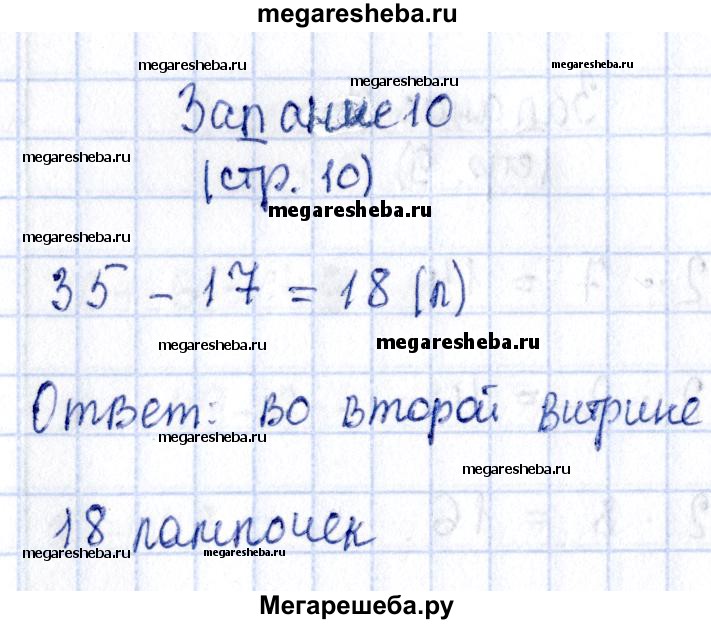 megaresheba.ru
megaresheba.ru megaresheba.ru
megaresheba.ru
Задание 10
megaresheba.ru
(стр. 10)
megaresheba.ru
megaresheba.ru
35 - 17 = 18 (л)
megaresheba.ru megaresheba.ru
Ответ: во второй витрине
megaresheba.ru
megaresheba.ru
18 лампочек
megaresheba.ru megaresheba.ru
Мегарешеба.ру